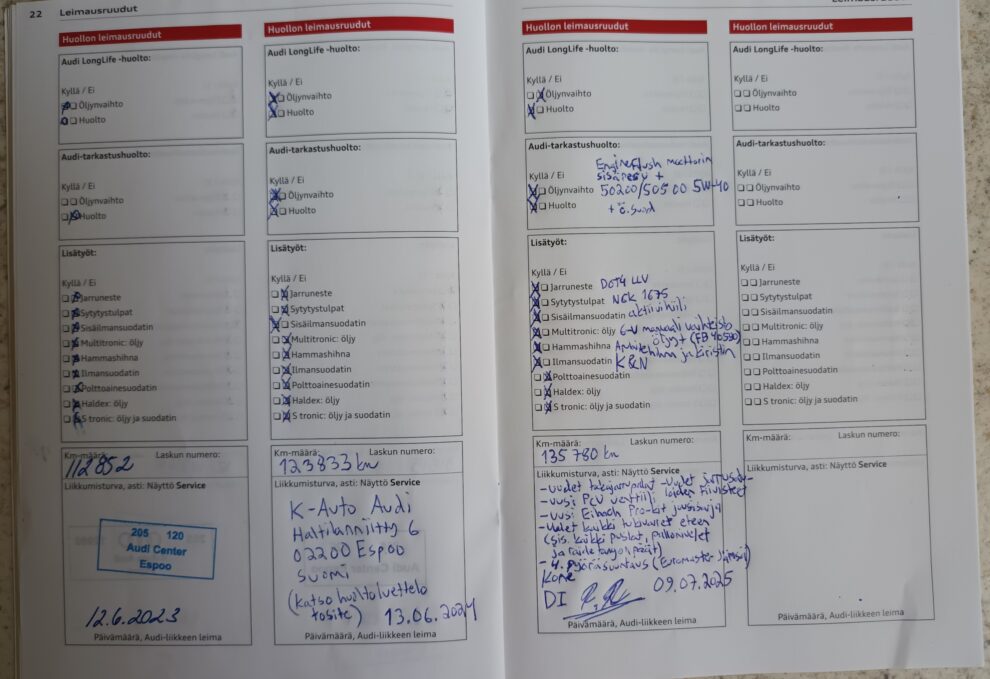 22 Leimausruudut
Huollon leimausruudut
Audi LongLife -huolto:
Kyllä / Ei
Öljynvaihto
Huolto
Audi-tarkastushuolto:
Kyllä / Ei
Öljynvaihto
Huolto
Lisätyöt:
Kyllä / Ei
Jarruneste
Sytytystulpat
Sisäilmansuodatin
Multitronic: öljy
Hammashihna
Ilmansuodatin
Polttoainesuodatin
Haldex: öljy
S tronic: öljy ja suodatin
Km-määrä: Laskun numero:
112852
Liikkumisturva, asti: Näyttö Service
205 120
Audi Center
Espoo
12.6.2023
Päivämäärä, Audi-liikkeen leima
Huollon leimausruudut
Audi LongLife -huolto:
Kyllä / Ei
Öljynvaihto
Huolto
Audi-tarkastushuolto:
Kyllä / Ei
Öljynvaihto
Huolto
Lisätyöt:
Kyllä / Ei
Jarruneste
Sytytystulpat
Sisäilmansuodatin
Multitronic: öljy
Hammashihna
Ilmansuodatin
Polttoainesuodatin
Haldex: öljy
S tronic: öljy ja suodatin
Km-määrä: Laskun numero:
123833 km
Liikkumisturva, asti: Näyttö Service
K-Auto Audi
Haltilanniitty 6
02200 Espoo
Suomi
(katso huoltoluettelo
tosite) 13.06.2024
Päivämäärä, Audi-liikkeen leima
Huollon leimausruudut
Audi LongLife -huolto:
Kyllä / Ei
Öljynvaihto
Huolto
Audi-tarkastushuolto:
Engine flush moottorin
sisäpesu +
Kyllä / Ei
Öljynvaihto 50200/50500 5W-40
Huolto + ö.suod
Lisätyöt:
Kyllä / Ei
Jarruneste DOT4 LLV
Sytytystulpat NGK 1675
Sisäilmansuodatin aktiivihiili
Multitronic: öljy 6-v manuaali vaihteisto
öljyt
Hammashihna Apulaitehihna ja kiristin
Ilmansuodatin K&N
Polttoainesuodatin
Haldex: öljy
S tronic: öljy ja suodatin
Km-määrä: Laskun numero:
135 780 km
Liikkumisturva, asti: Näyttö Service
-uudet takajarrupalat -Uudet
-uusi PCV venttiili tiivisteet
-uusi Eibach Pro-kit jousisarja
-Uudet kaikki tukivarret eteen
(sis. kaikki puslat, pallonivelet
ja raidetangon päät)
-4. pyöräsuuntaus (Euromaster Jämsä)
Kone
DI 09.07.2025
Päivämäärä, Audi-liikkeen leima
Huollon leimausruudut
Audi LongLife -huolto:
Kyllä / Ei
Öljynvaihto
Huolto
Audi-tarkastushuolto:
Kyllä / Ei
Öljynvaihto
Huolto
Lisätyöt:
Kyllä / Ei
Jarruneste
Sytytystulpat
Sisäilmansuodatin
Multitronic: öljy
Hammashihna
Ilmansuodatin
Polttoainesuodatin
Haldex: öljy
S tronic: öljy ja suodatin
Km-määrä: Laskun numero:
Liikkumisturva, asti: Näyttö Service
Päivämäärä, Audi-liikkeen leima